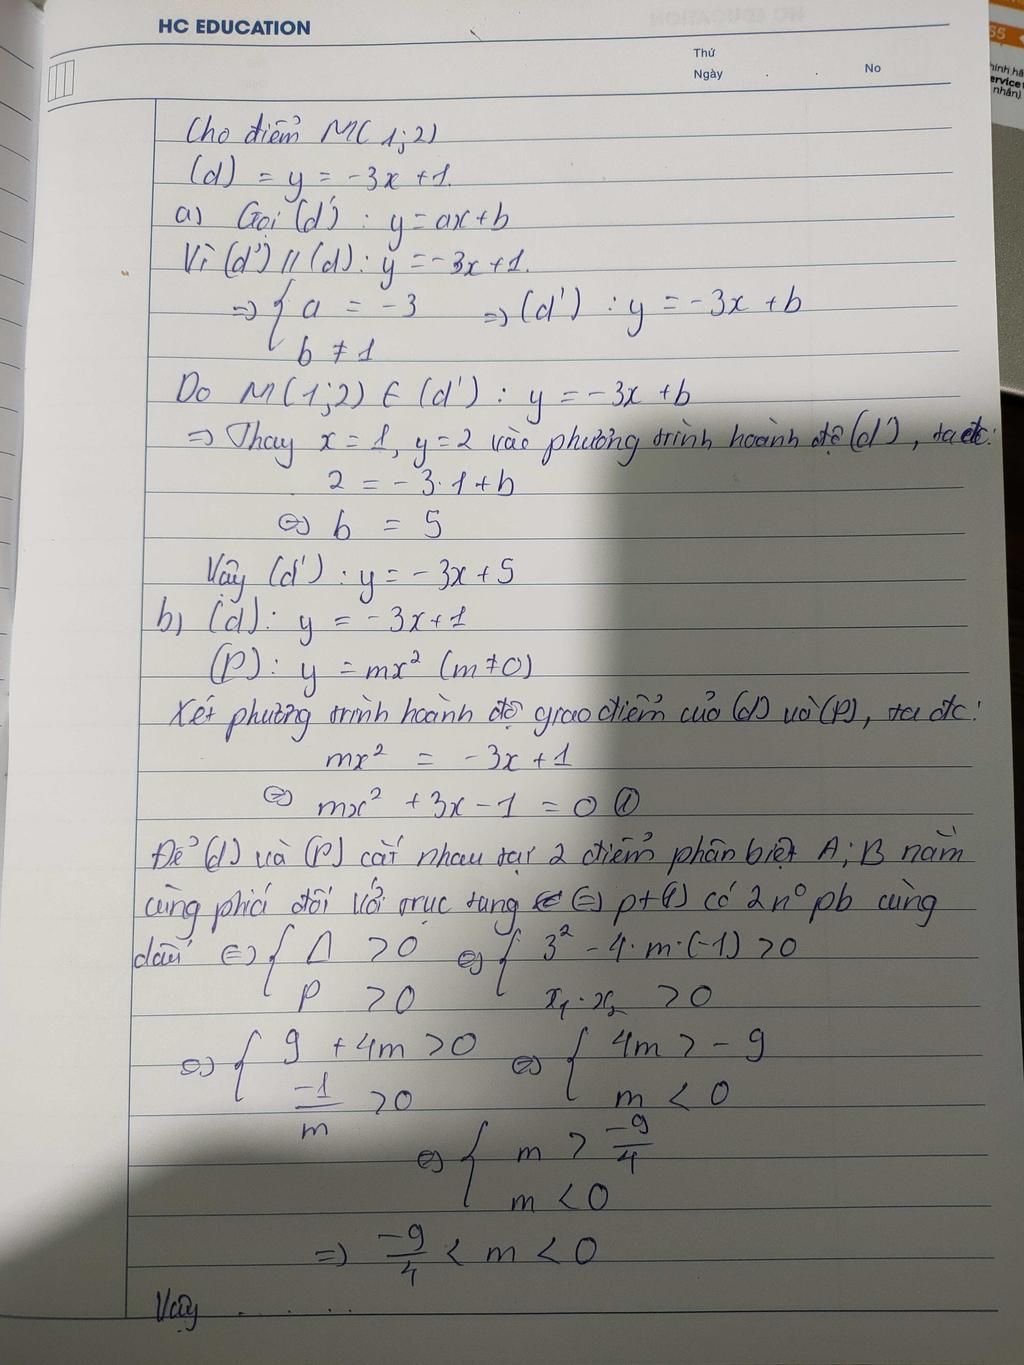 HC EDUCATION
Thứ
Ngày . . No
Cho điểm M(1;2)
(d) = y = -3x +1.
a) Gọi (d') : y = ax + b
Vì (d') // (d) : y = -3x +1.
=> { a = -3 => (d') : y = -3x + b
b ≠ 1
Do M(1;2) ∈ (d') : y = -3x + b
=> Thay x = 1, y = 2 vào phương trình hoành độ (d'), ta đc:
2 = -3.1 + b
<=> b = 5
Vậy (d') : y = -3x + 5
b) (d): y = -3x + 1
(P): y = mx² (m ≠ 0)
Xét phương trình hoành độ giao điểm của (d) và (P), ta đc:
mx² = -3x + 1
<=> mx² + 3x - 1 = 0 ①
Để (d) và (P) cắt nhau tại 2 điểm phân biệt A; B nằm
cùng phía đối với trục tung <=> pt (1) có 2 n° pb cùng
dấu <=> { Δ > 0 <=> { 3² - 4.m.(-1) > 0
P > 0 x₁.x₂ > 0
<=> { 9 + 4m > 0 <=> { 4m > -9
-1/m > 0 m < 0
<=> { m > -9/4
m < 0
=> -9/4 < m < 0
Vậy . . . .